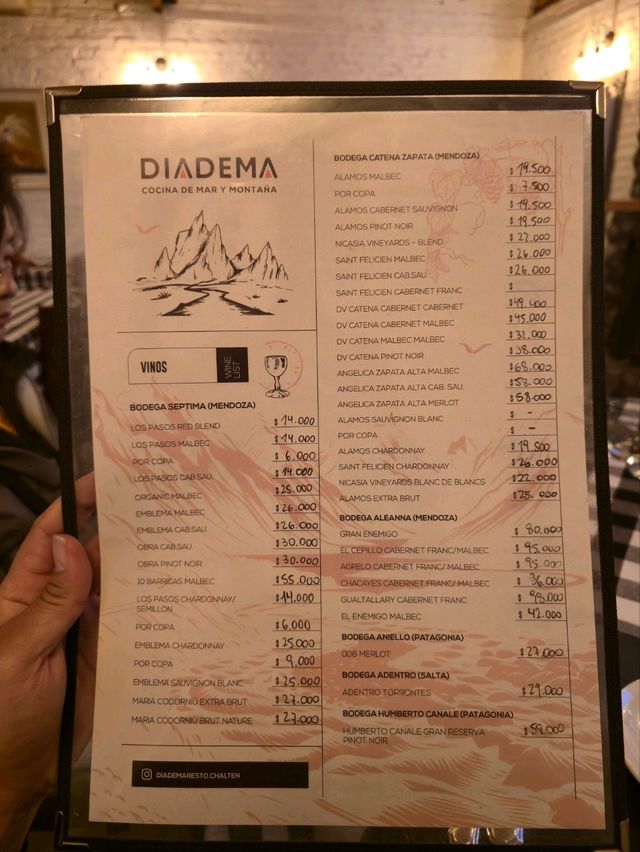 DIADEMA
COCINA DE MAR Y MONTAÑA
VINOS
WINE LIST
BODEGA SEPTIMA (MENDOZA)
LOS PASOS RED BLEND $ 14.000
LOS PASOS MALBEC $ 14.000
POR COPA $ 6.000
LOS PASOS CAB.SAU. $ 14.000
ORGANIC MALBEC $ 25.000
EMBLEMA MALBEC $ 26.000
EMBLEMA CAB.SAU. $ 26.000
OBRA CAB.SAU. $ 30.000
OBRA PINOT NOIR $ 30.000
10 BARRICAS MALBEC $ 55.000
LOS PASOS CHARDONNAY/ $ 14.000
SEMILLON
POR COPA $ 6.000
EMBLEMA CHARDONNAY $ 25.000
POR COPA $ 9.000
EMBLEMA SAUVIGNON BLANC $ 25.000
MARIA CODORNIU EXTRA BRUT $ 27.000
MARIA CODORNIU BRUT NATURE $ 27.000
DIADEMARESTO.CHALTEN
BODEGA CATENA ZAPATA (MENDOZA)
ALAMOS MALBEC $ 19.500
POR COPA $ 7.500
ALAMOS CABERNET SAUVIGNON $ 19.500
ALAMOS PINOT NOIR $ 19.500
NICASIA VINEYARDS - BLEND $ 22.000
SAINT FELICIEN MALBEC $ 26.000
SAINT FELICIEN CAB.SAU. $ 26.000
SAINT FELICIEN CABERNET FRANC $
DV CATENA CABERNET CABERNET $ 49.000
DV CATENA CABERNET MALBEC $ 45.000
DV CATENA MALBEC MALBEC $
DV CATENA PINOT NOIR $ 38.000
ANGELICA ZAPATA ALTA MALBEC $ 68.000
ANGELICA ZAPATA ALTA CAB. SAU. $ 53.000
ANGELICA ZAPATA ALTA MERLOT $ 58.000
ALAMOS SAUVIGNON BLANC $ -
POR COPA $ -
ALAMOS CHARDONNAY $ 19.500
SAINT FELICIEN CHARDONNAY $ 26.000
NICASIA VINEYARDS BLANC DE BLANCS $ 22.000
ALAMOS EXTRA BRUT $ 25.000
BODEGA ALEANNA (MENDOZA)
GRAN ENEMIGO $ 80.000
EL CEPILLO CABERNET FRANC/MALBEC $ 95.000
AGRELO CABERNET FRANC/ MALBEC $ 95.000
CHACAYES CABERNET FRANC/ MALBEC $ 36.000
GUALTALLARY CABERNET FRANC $ 98.000
EL ENEMIGO MALBEC $ 42.000
BODEGA ANIELLO (PATAGONIA)
006 MERLOT $ 27.000
BODEGA ADENTRO (SALTA)
ADENTRO TORRONTES $ 29.000
BODEGA HUMBERTO CANALE (PATAGONIA)
HUMBERTO CANALE GRAN RESERVA $ 59.000
PINOT NOIR